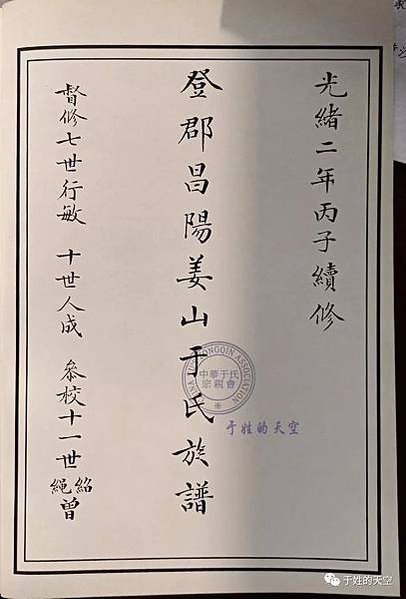 光緒二年丙子續修
登郡昌陽姜山于氏族譜
督修七世行敏 十世人成 叅校十一世紹繩曾
中華于氏宗親會
于姓的天空
于姓的天空